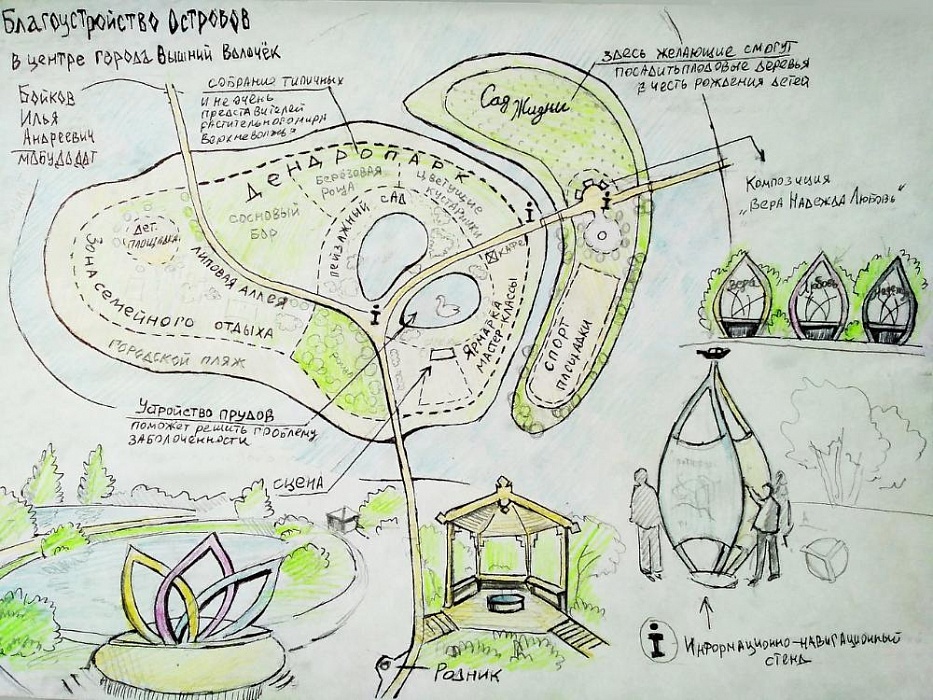 Благоустройство Островов
в центре города Вышний Волочёк
Бойков
Илья
Андреевич
МОБУДОДДТ
собрание типичных
и не очень
представителей
растительного мира
Верхневолжья
здесь желающие смогут
посадить плодовые деревья
в честь рождения детей
Сад Жизни
ДЕНДРОПАРК
Берёзовая
роща
Цветущие
кустарники
Сосновый
бор
Пейзажный сад
i
i
Композиция
„Вера Надежда Любовь"
Дет.
площадка
Липовая аллея
Зона семейного отдыха
Городской пляж
кафе
i
Ярмарка
мастер-классы
Спорт
площадки
Вера
Любовь
Надежда
Устройство прудов
поможет решить проблему
заболоченности
сцена
Родник
i Информационно-навигационный
стенд